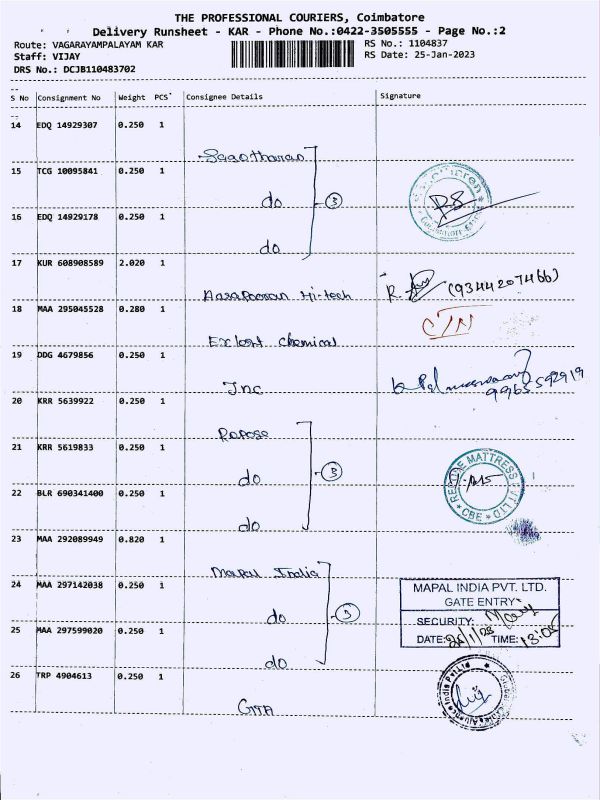 THE PROFESSIONAL COURIERS, Coimbatore
Delivery Runsheet - KAR - Phone No.:0422-3505555 - Page No.:2
Route: VAGARAYAMPALAYAM KAR
RS No.: 1104837
Staff: VIJAY
RS Date: 25-Jan-2023
DRS No.: DCJB110483702
S No Consignment No Weight PCS Consignee Details Signature
14 EDQ 14929307 0.250 1
15 TCG 10095841 0.250 1
do 3
16 EDQ 14929178 0.250 1
do
17 KUR 608908589 2.020 1
Hi-tech R. (9344207466)
18 MAA 295045528 0.280 1
chemical
19 DDG 4679856 0.250 1
Inc
9965592919
20 KRR 5639922 0.250 1
Repose
21 KRR 5619833 0.250 1
do 3
MATTRESS PVT LTD
CBE
22 BLR 690341400 0.250 1
do
23 MAA 292089949 0.820 1
Mapal India
24 MAA 297142038 0.250 1
do 3
MAPAL INDIA PVT. LTD.
GATE ENTRY
SECURITY:
DATE: TIME: 13:05
25 MAA 297599020 0.250 1
do
26 TRP 4904613 0.250 1
India Pvt Ltd